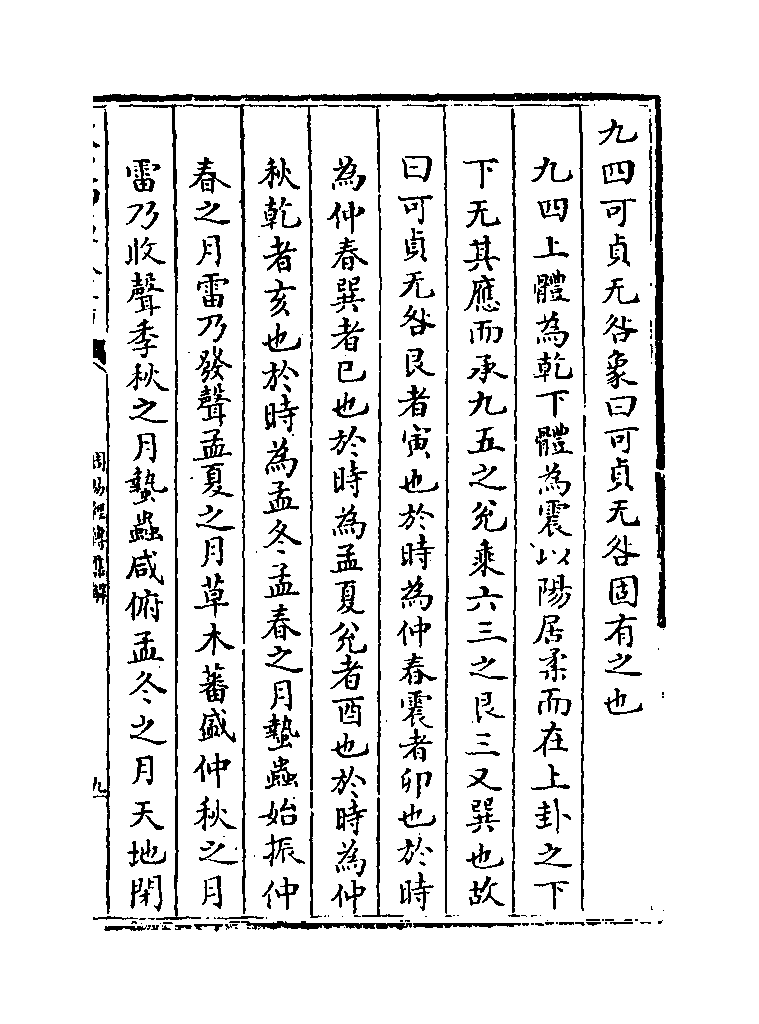 九四可貞无咎象曰可貞无咎固有之也
九四上體為乾下體為震以陽居柔而在上卦之下
下无其應而承九五之兊乘六三之艮三又巽也故
曰可貞无咎艮者寅也於時為仲春震者卯也於時
為仲春巽者巳也於時為孟夏兊者酉也於時為仲
秋乾者亥也於時為孟冬孟春之月蟄蟲始振仲
春之月雷乃發聲孟夏之月草木蕃盛仲秋之月
雷乃收聲季秋之月蟄蟲咸俯孟冬之月天地閉
周易經傳集解
九